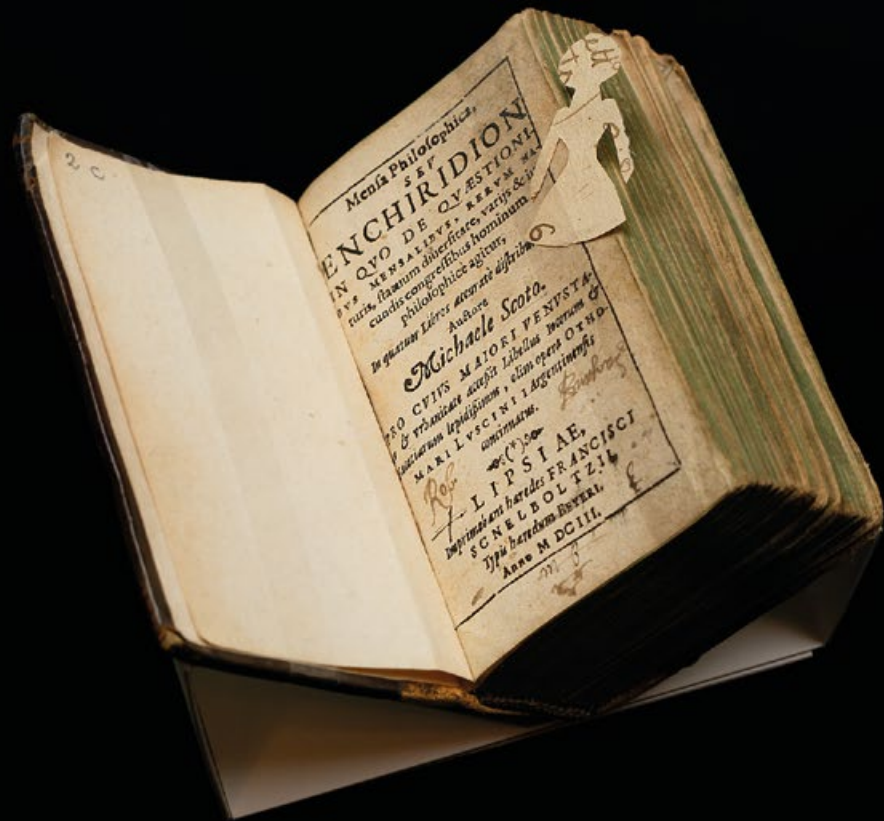 2 C
Menſa Philoſophica,
SEV
ENCHIRIDION
IN QVO DE QVÆSTIONI-
BVS MENSALIBVS, RERVM NA-
turis, ſtatuum diuerſitate, varijs, &
cundis congreſſibus hominum
philoſophicè agitur,
In quatuor Libros accuratè diſtribu
Auctore
Michaele Scoto.
PRO CVIVS MAIORI VENVSTA-
& vrbanitate acceßit Libellus iocorum &
lepidißimus, olim operâ OTHO-
MARI LVSCINII Argentinenſis
concinnatus.
(*)
LIPSIAE,
Imprimebant hæredes FRANCISCI
SCNELBOLTZII,
Typis hæredum BEYERI.
Anno M DCIII.
6